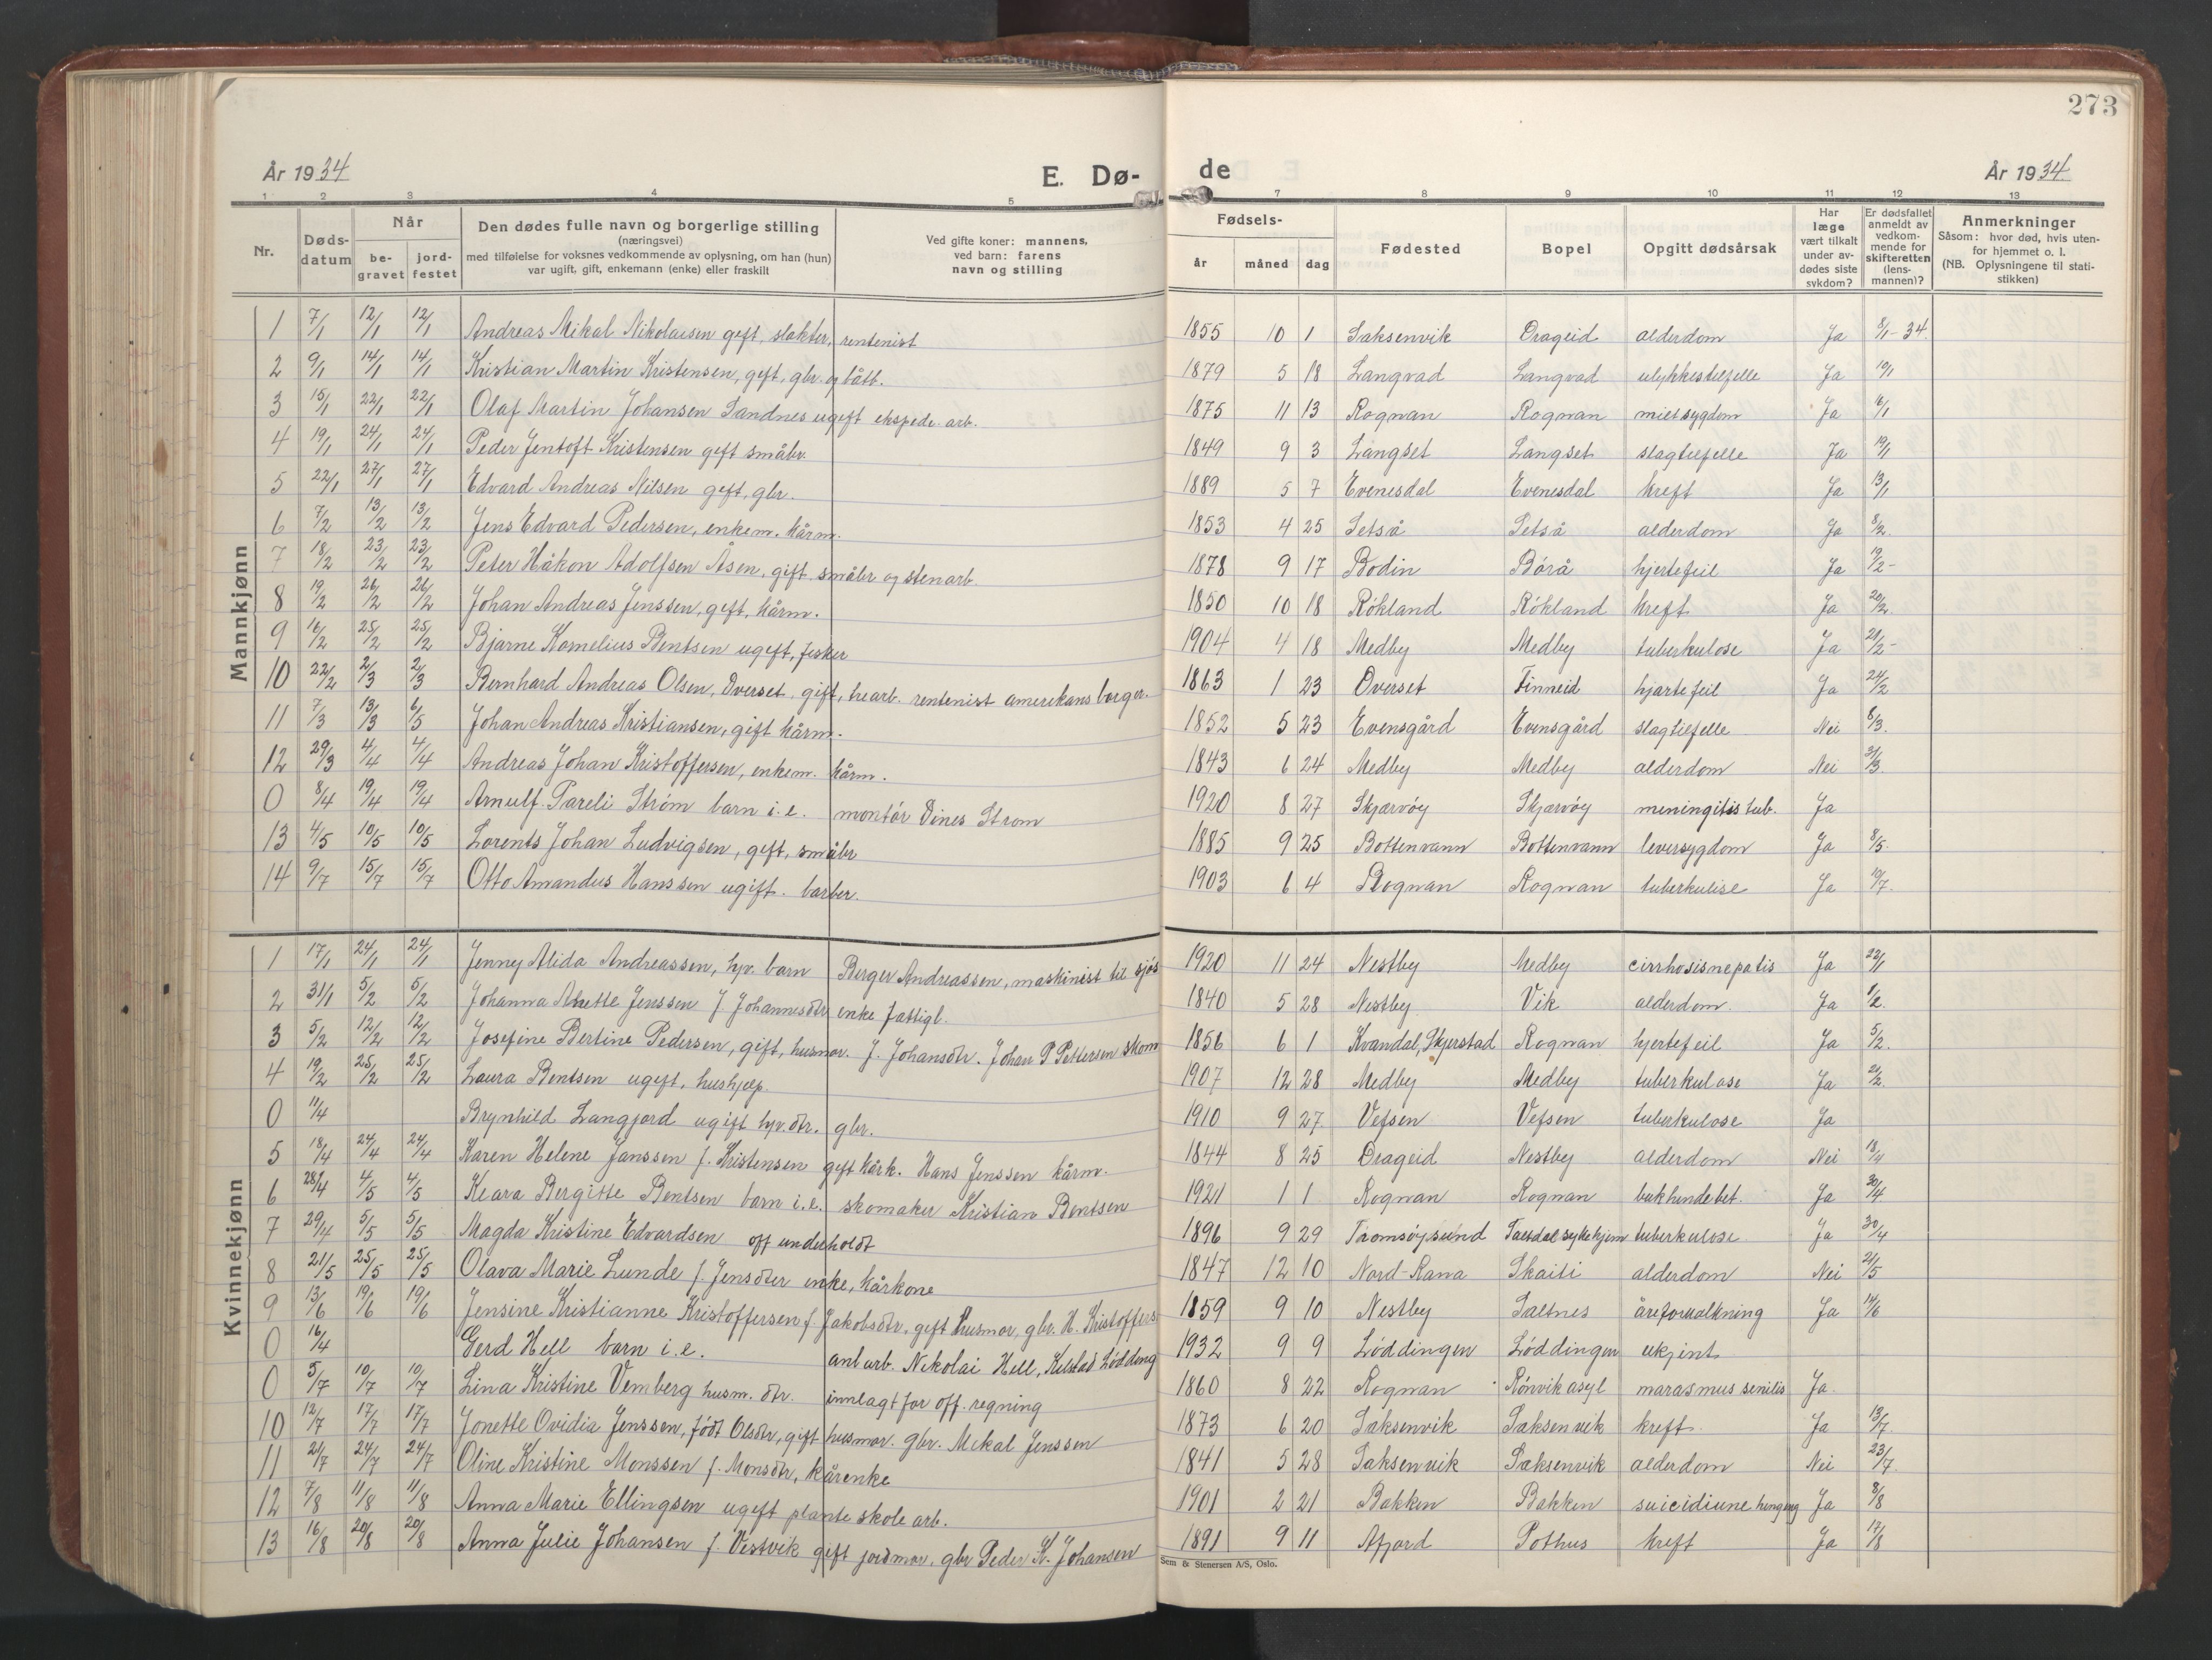 273
År 1934 E. Dø- de År 1934
1 2 3 4 5 7 8 9 10 11 12 13
Nr. Døds-datum Når be-gravet jord-festet Den dødes fulle navn og borgerlige stilling (næringsvei) med tilføielse for voksnes vedkommende av oplysning, om han (hun) var ugift, gift, enkemann (enke) eller fraskilt Ved gifte koner: mannens, ved barn: farens navn og stilling Fødsels- år måned dag Fødested Bopel Opgitt dødsårsak Har læge vært tilkalt under av-dødes siste sykdom? Er dødsfallet anmeldt av vedkom-mende for skifteretten (lens-mannen)? Anmerkninger Såsom: hvor død, hvis uten-for hjemmet o. l. (NB. Oplysningene til stati-stikken)
Mannkjønn
1 7/1 12/1 12/1 Andreas Mikal Nikolaisen gift, slakter, rentenist 1855 10 1 Saksenvik Drageid alderdom Ja 8/1-34.
2 9/1 14/1 14/1 Kristian Martin Kristensen, gift, gbr. og båtb. 1879 5 18 Langvad Langvad ulykkestilfelle Ja 10/1
3 15/1 22/1 22/1 Olaf Martin Johansen Sandnes ugift ekspede. arb. 1875 11 13 Rognan Rognan miltsygdom Ja 16/1
4 19/1 24/1 24/1 Peder Jentoft Kristensen gift småbr. 1849 9 3 Langset Langset slagtilfelle Ja 19/1
5 22/1 27/1 27/1 Edvard Andreas Nilsen gift, gbr. 1889 5 7 Evenesdal Evenesdal kreft Ja 13/1
6 7/2 13/2 13/2 Jens Edvard Pedersen, enkem. kårm. 1853 4 25 Setså Setså alderdom Ja 8/2.
7 18/2 23/2 23/2 Peter Håkon Adolfsen Åsen, gift småbr og stenarb. 1878 9 17 Bodin Börå hjertefeil Ja 19/2-
8 19/2 26/2 26/2 Johan Andreas Jenssen, gift, kårm. 1850 10 18 Rökland Rökland kreft Ja 20/2.
9 16/2 25/2 25/2 Bjarne Kornelius Bentsen ugift, fisker 1904 4 18 Medby Medby tuberkulose Ja 21/2-
10 22/2 2/3 2/3 Bernhard Andreas Olsen, Överset, gift, rentenist amerikans borger. 1863 1 23 Överset Finneid hjartefeil Ja 24/2
11 7/3 13/3 6/5 Johan Andreas Kristiansen, gift kårm. 1852 5 23 Evensgård Evensgård slagtilfelle Nei 8/3.
12 29/3 4/4 4/4 Andreas Johan Kristoffersen, enkem. kårm. 1843 6 24 Medby Medby alderdom Nei 3/3.
0 8/4 19/4 19/4 Arnulf Pareli Ström barn i.e. montör Dines Strøm 1920 8 27 Skjærvöy Skjærvöy meningitis tub. Ja
13 4/5 10/5 10/5 Lorents Johan Ludvigsen, gift, småbr 1885 9 25 Bottenvann Bottenvann leversygdom Ja 8/5.
14 9/7 15/7 15/7 Otto Amandus Hanssen ugift. barber. 1903 6 4 Rognan Rognan tuberkulise Ja 10/7.
Kvinnekjønn
1 17/1 24/1 24/1 Jenny Alida Andreassen, hjv. barn Berger Andreassen, maskinist til sjös 1920 11 24 Nestby Medby cirrhosisnepatis Ja 22/1
2 31/1 5/2 5/2 Johanna Anette Jenssen f. Johannesdtr enke fattigl. 1840 5 28 Nestby Vik alderdom. Ja 1/2.
3 5/2 12/2 12/2 Josefine Bertine Pedersen, gift, husmor. f. Johansdtr. Johan P Pettersen skom 1856 6 1 Kvandal, Skjerstad Rognan hjertefeil Ja 5/2.
4 19/2 25/2 25/2 Laura Bentsen ugift, hushjelp. 1907 12 28 Medby Medby tuberkulose Ja 21/2.
0 11/4 Brynhild Langjord ugift hjv. dtr. gbr. 1910 9 27 Vefsen Vefsen tuberkulose Ja
5 18/4 24/4 24/4 Karen Helene Janssen f. Kristensen gift kårk. Hans Jenssen kårm. 1844 8 25 Drageid Nestby alderdom Nei 18/4
6 28/4 4/5 4/5 Klara Bergitte Bentsen barn i.e. skomaker Kristian Bentsen 1921 1 1 Rognan Rognan bukhindebet. Ja 30/4
7 29/4 5/5 5/5 Magda Kristine Edvardsen off underholdt 1896 9 29 Tromsöysund sykehjem tuberkulose. Ja 30/4
8 21/5 25/5 25/5 Olava Marie Lunde f. Jensdter enke, kårkone 1847 12 10 Nord-Rana Skaiti alderdom Nei 21/5
9 13/6 19/6 19/6 Jensine Kristianne Kristoffersen f. Jakobsdtr. gift husmor, gbr. H. Kristoffers 1859 9 10 Nestby Saltnes åreforkalkning Ja 14/6
0 16/4 Gerd Hell barn i.e. anl arb. Nikolai Hell, Lödding 1932 9 9 Löddingen Löddingen ukjent
0 5/7 10/7 10/7 Lina Kristine Vemberg husm. dtr. innlagt for off. regning 1860 8 22 Rognan Rönvik asyl marasmus senilis Ja.
10 12/7 17/7 17/7 Jonette Ovidia Jenssen, födt Olsdtr, gift husmor. gbr. Mikal Jenssen 1873 6 20 Saksenvik Saksenvik kreft. Ja 13/7.
11 21/7 24/7 24/7 Oline Kristine Monssen f. Monsdtr, kårenke 1841 5 28 Saksenvik Saksenvik alderdom Nei 23/7.
12 7/8 11/8 11/8 Anna Marie Ellingsen ugift planteskole arb. 1901 2 21 Bakken Bakken suicidiune Ja 8/8
13 16/8 20/8 20/8 Anna Julie Johansen f. Vestvik gift jordmor, gbr Peder K. Johansen 1891 9 11 Afjord Pothus kreft Ja 17/8
Sem & Stenersen A/S, Oslo.